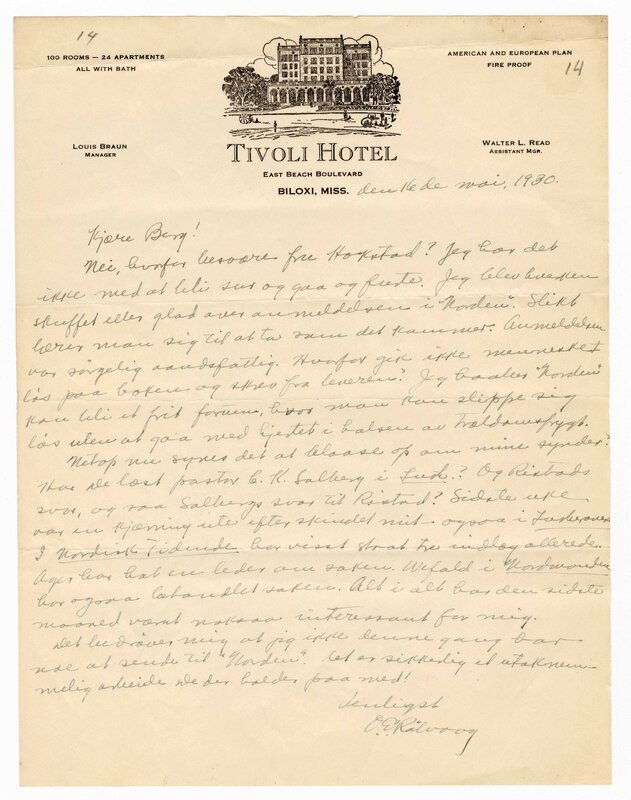 14
100 ROOMS — 24 APARTMENTS
ALL WITH BATH
AMERICAN AND EUROPEAN PLAN
FIRE PROOF
14
LOUIS BRAUN
MANAGER
WALTER L. READ
ASSISTANT MGR.
TIVOLI HOTEL
EAST BEACH BOULEVARD
BILOXI, MISS. den 16de mai, 1930.
Kjære Berg!
Nei, hvorfor besvære fru Hokstad? Jeg har det
ikke med at bli sur og gaa og furte. Jeg blev hverken
skuffet eller glad over anmeldelsen i "Norden". Slikt
lærer man sig til at ta som det kommer. Anmeldelsen
var sørgelig aandsfattig. Hvorfor gik ikke mennesket
løs paa boken og skrev fra leveren? Jeg haaber "Norden"
kan bli et frit forum, hvor man kan slippe sig
løs uten at gaa med hjertet i halsen av trældomsfrygt.
Netop nu synes det at blaase op om mine synder.
Har De læst pastor C. K. Solberg i Luth.? Og Ristads
svar, og saa Solbergs svar til Ristad? Sidste uke
var en kjærring ute efter skindet mit – ogsaa i Lutheraneren
I Nordisk Tidende har visst staat tre indlæg allerede.
Ager har hat en leder om saken. Wefald i "Nordmanden"
har ogsaa behandlet saken. Alt i alt har den sidste
maaned været noksaa interessant for mig.
Det bedrøver mig at jeg ikke denne gang har
noe at sende til "Norden". Det er sikkerlig et utaknem-
melig arbeide De der holder paa med!
Venligst
O. E. Rölvaag